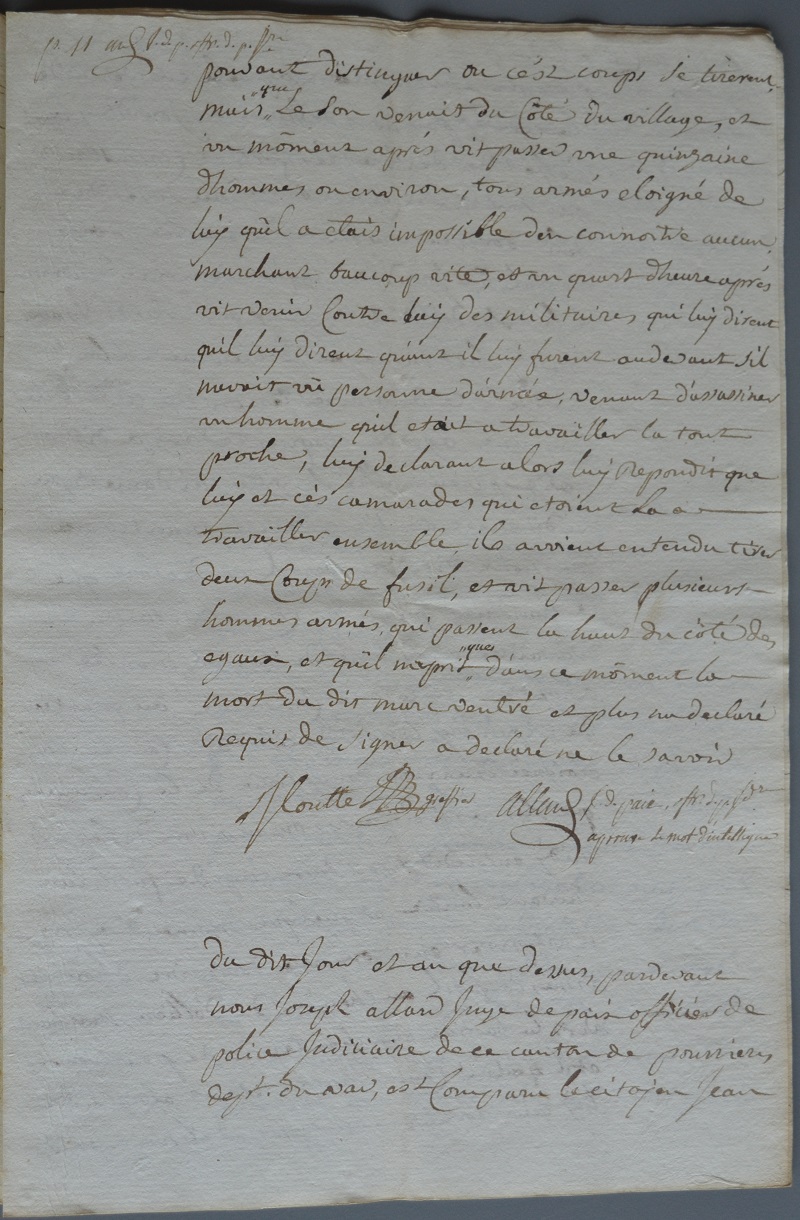 p. 11 all J. d. p. off. d. p. Jre
pouvant distinguer ou cést coups se tirerent,
mais que le son venait du Côté du village, et
un mõment aprés vit passer une quinzaine
d'hommes ou environ, tous armés eloigné de
luy qu'il a etais impossible den connoitre aucun,
marchant baucoup vite, et un quart d'heure aprés
vit venir Contre luy des militaires qui luy dirent
quil luy dirent quánt il luy furent audevant s'il
navait vû personne d'armée, venant d'assassiner
un homme qu'il etait a travailler la tout
proche, luy declarant alors luy Repondit que
luy et cés camarades qui etoient La a
travailler ensemble, ils avoient entendu tirer
deux Coups de fusil, et vit passer plusieurs
hommes armés, qui passent la haut du côté des
egaux, et qu'il naprit ques dans ce mõment la
mort du dit marc ventré et plus na declaré
Requis de signer a declaré ne le savoir
greffier allard J. de paix, off. de p. Jre
aprouve le mot d'intelligne
du dit Jour et an que dessus, pardevant
nous Joseph allard Juge de paix officier de
police Judiciaire de ce canton de pourrieres
dept. du var, est Comparu le citoyen Jean